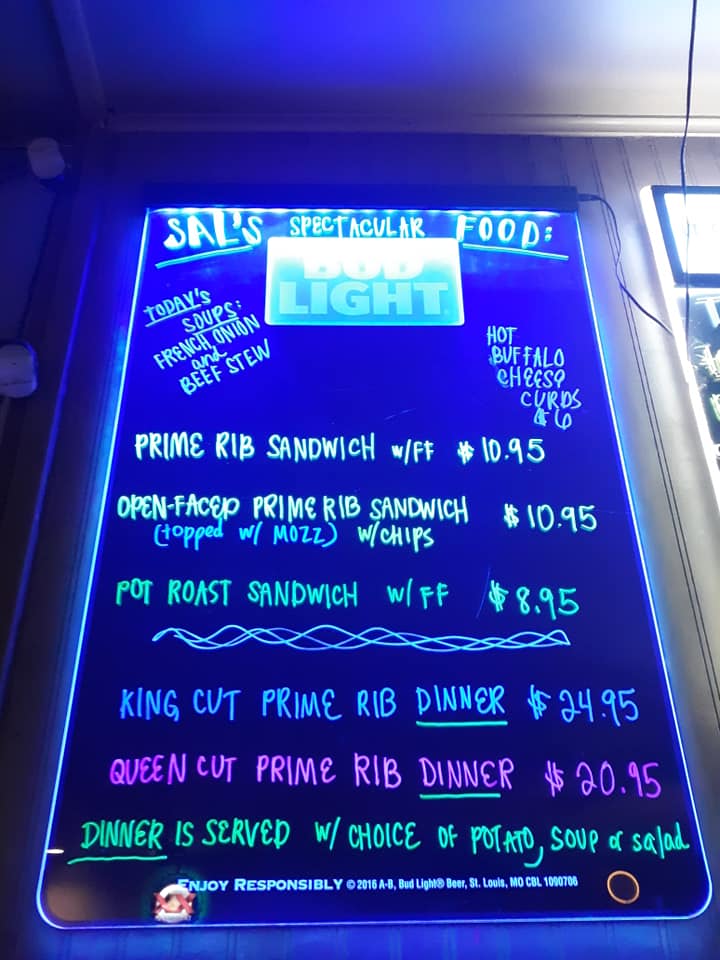 SAL'S SPECTACULAR FOOD:
BUD
LIGHT
TODAY'S
SOUPS:
FRENCH ONION
and
BEEF STEW
HOT
BUFFALO
CHEESE
CURDS
$6
PRIME RIB SANDWICH w/FF $10.95
OPEN-FACED PRIME RIB SANDWICH $10.95
(topped w/ MOZZ) w/CHIPS
POT ROAST SANDWICH w/FF $8.95
KING CUT PRIME RIB DINNER $24.95
QUEEN CUT PRIME RIB DINNER $20.95
DINNER IS SERVED w/ CHOICE OF POTATO, SOUP or salad
ENJOY RESPONSIBLY © 2016 A-B, Bud Light® Beer, St. Louis, MO CBL 1090706
XX